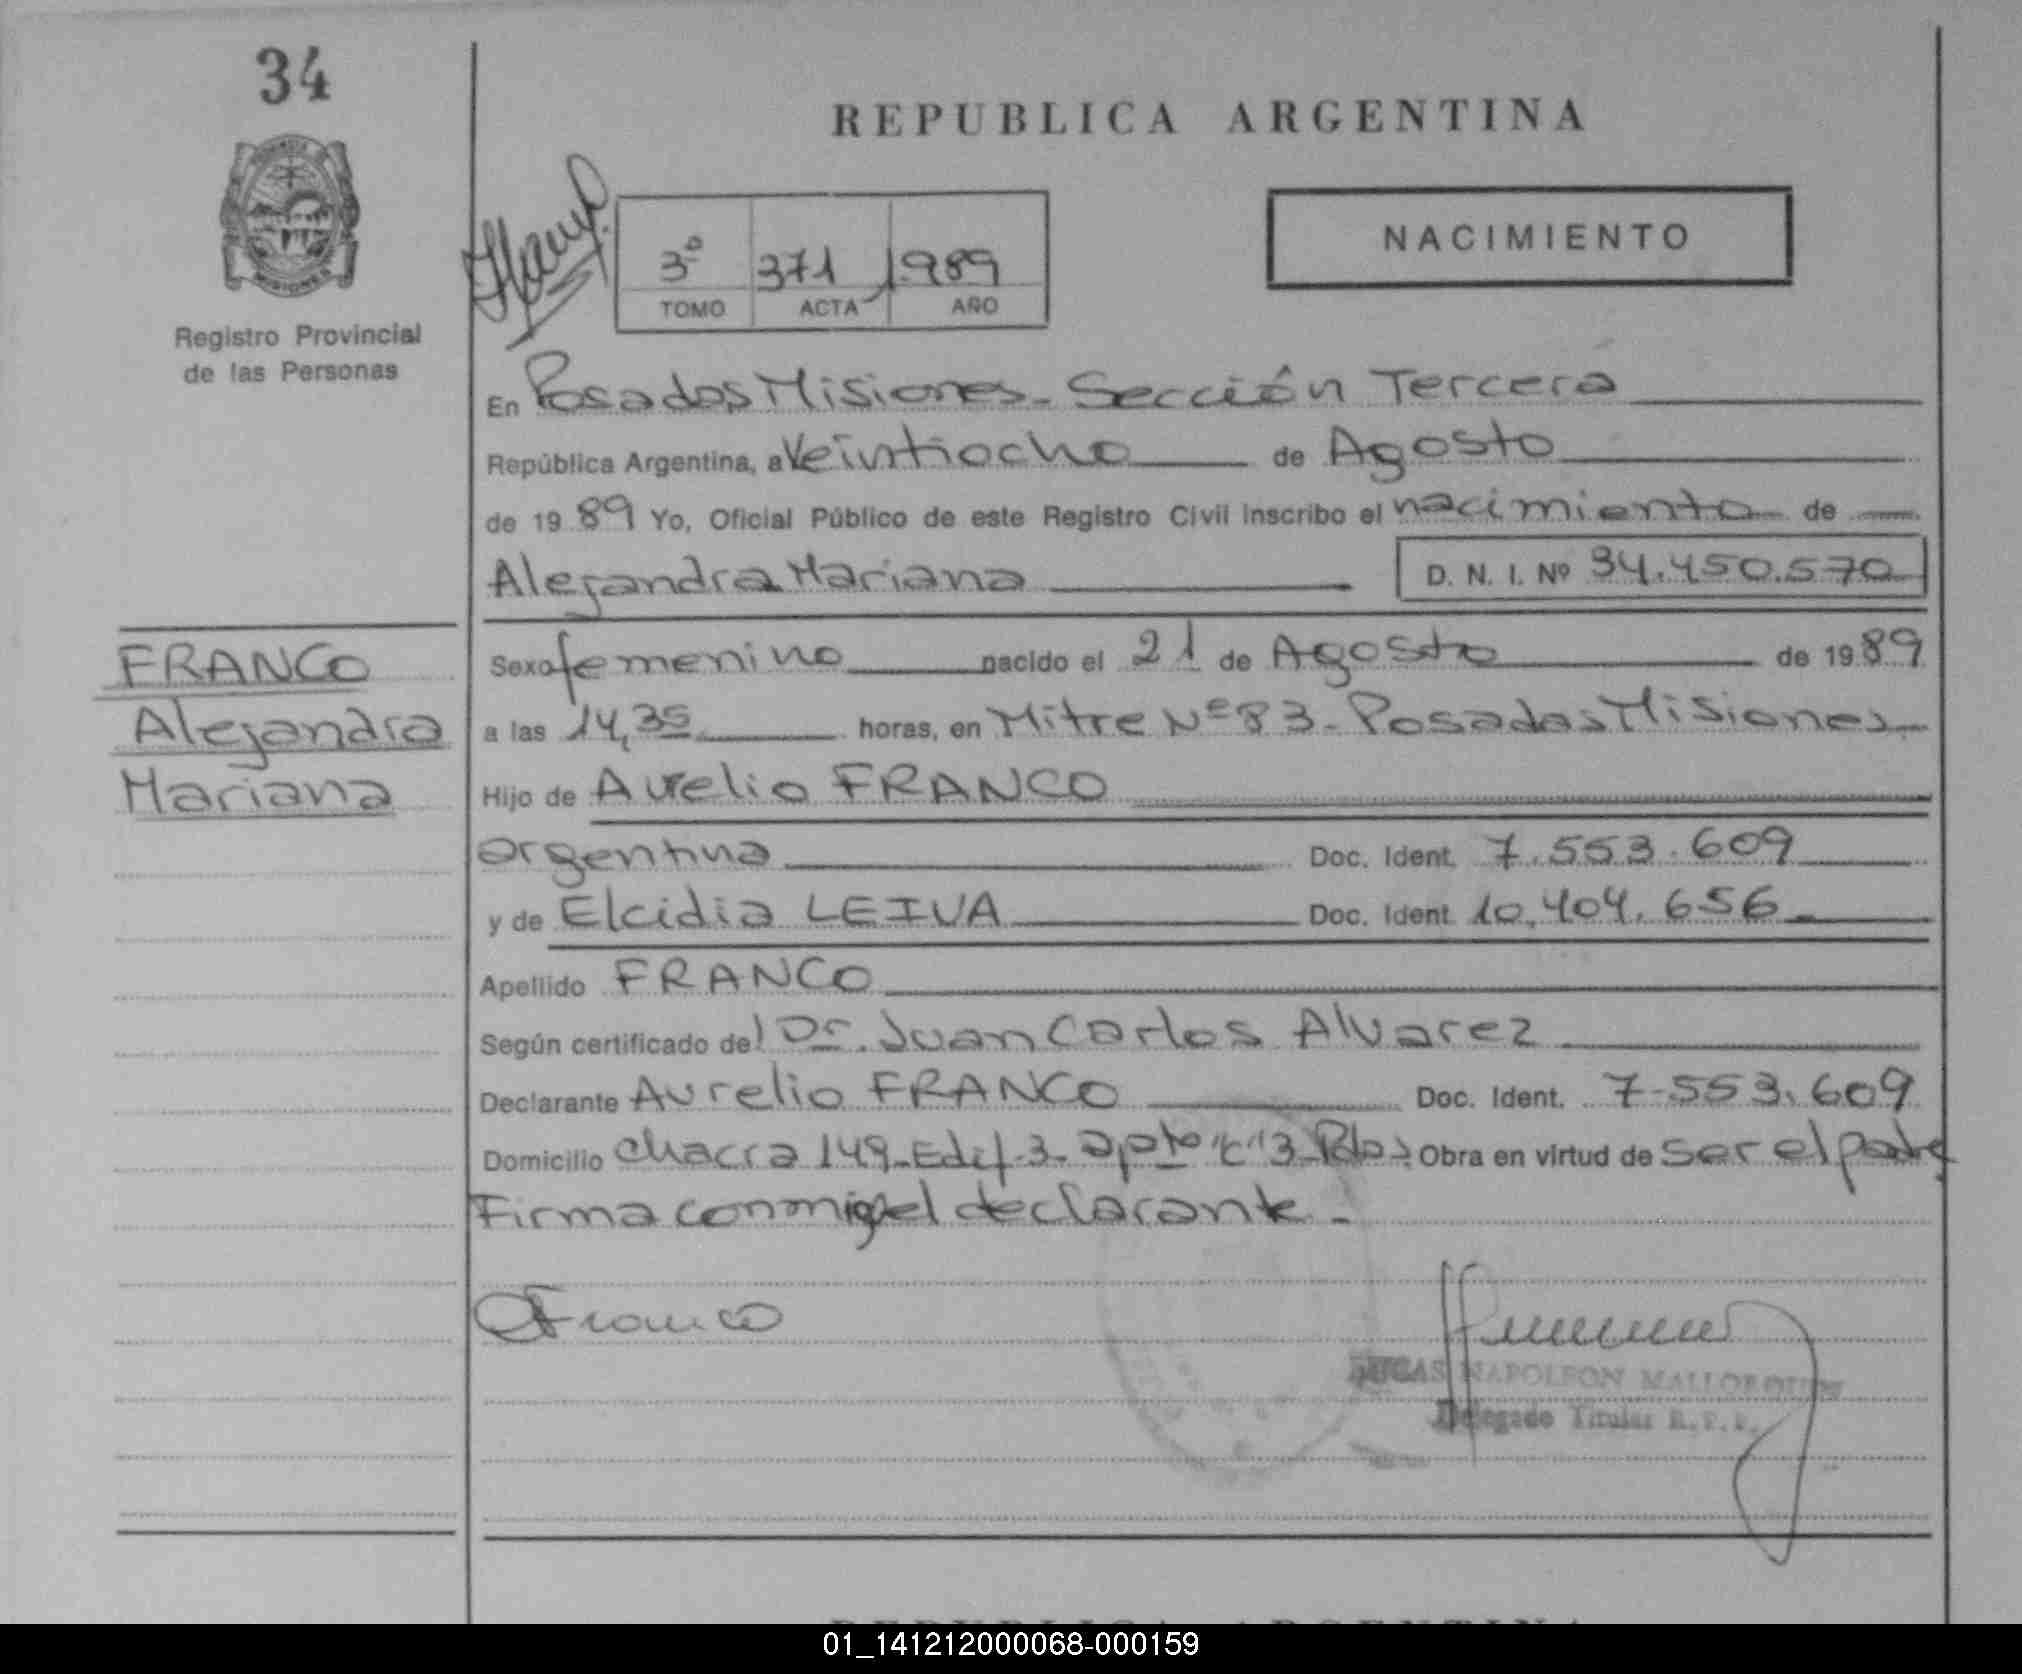 34
MISIONES
Registro Provincial
de las Personas
REPUBLICA ARGENTINA
NACIMIENTO
3º 371 1.989
TOMO ACTA AÑO
En Posadas Misiones - Sección Tercera
República Argentina, a Veintiocho de Agosto
de 19 89 Yo, Oficial Público de este Registro Civil inscribo el nacimiento de
Alejandra Mariana D. N. I. Nº 34.450.570
FRANCO
Alejandra
Mariana
Sexo femenino nacido el 21 de Agosto de 19 89
a las 14,35 horas, en Mitre Nº 83 - Posadas Misiones
Hijo de Aurelio FRANCO
argentina Doc. Ident. 7.553.609
y de Elcidia LEIVA Doc. Ident. 10.404.656 -
Apellido FRANCO
Según certificado del Dr. Juan Carlos Alvarez
Declarante Aurelio FRANCO Doc. Ident. 7.553.609
Domicilio Chacra 149 - Edif. 3 - apto "C" 3 - Pdas Obra en virtud de ser el padre
Firma conmigo el declarante -
Franco
LUCAS NAPOLEON MALLORQUIN
Delegado Titular R.P.P.
REPUBLICA ARGENTINA
01_141212000068-000159